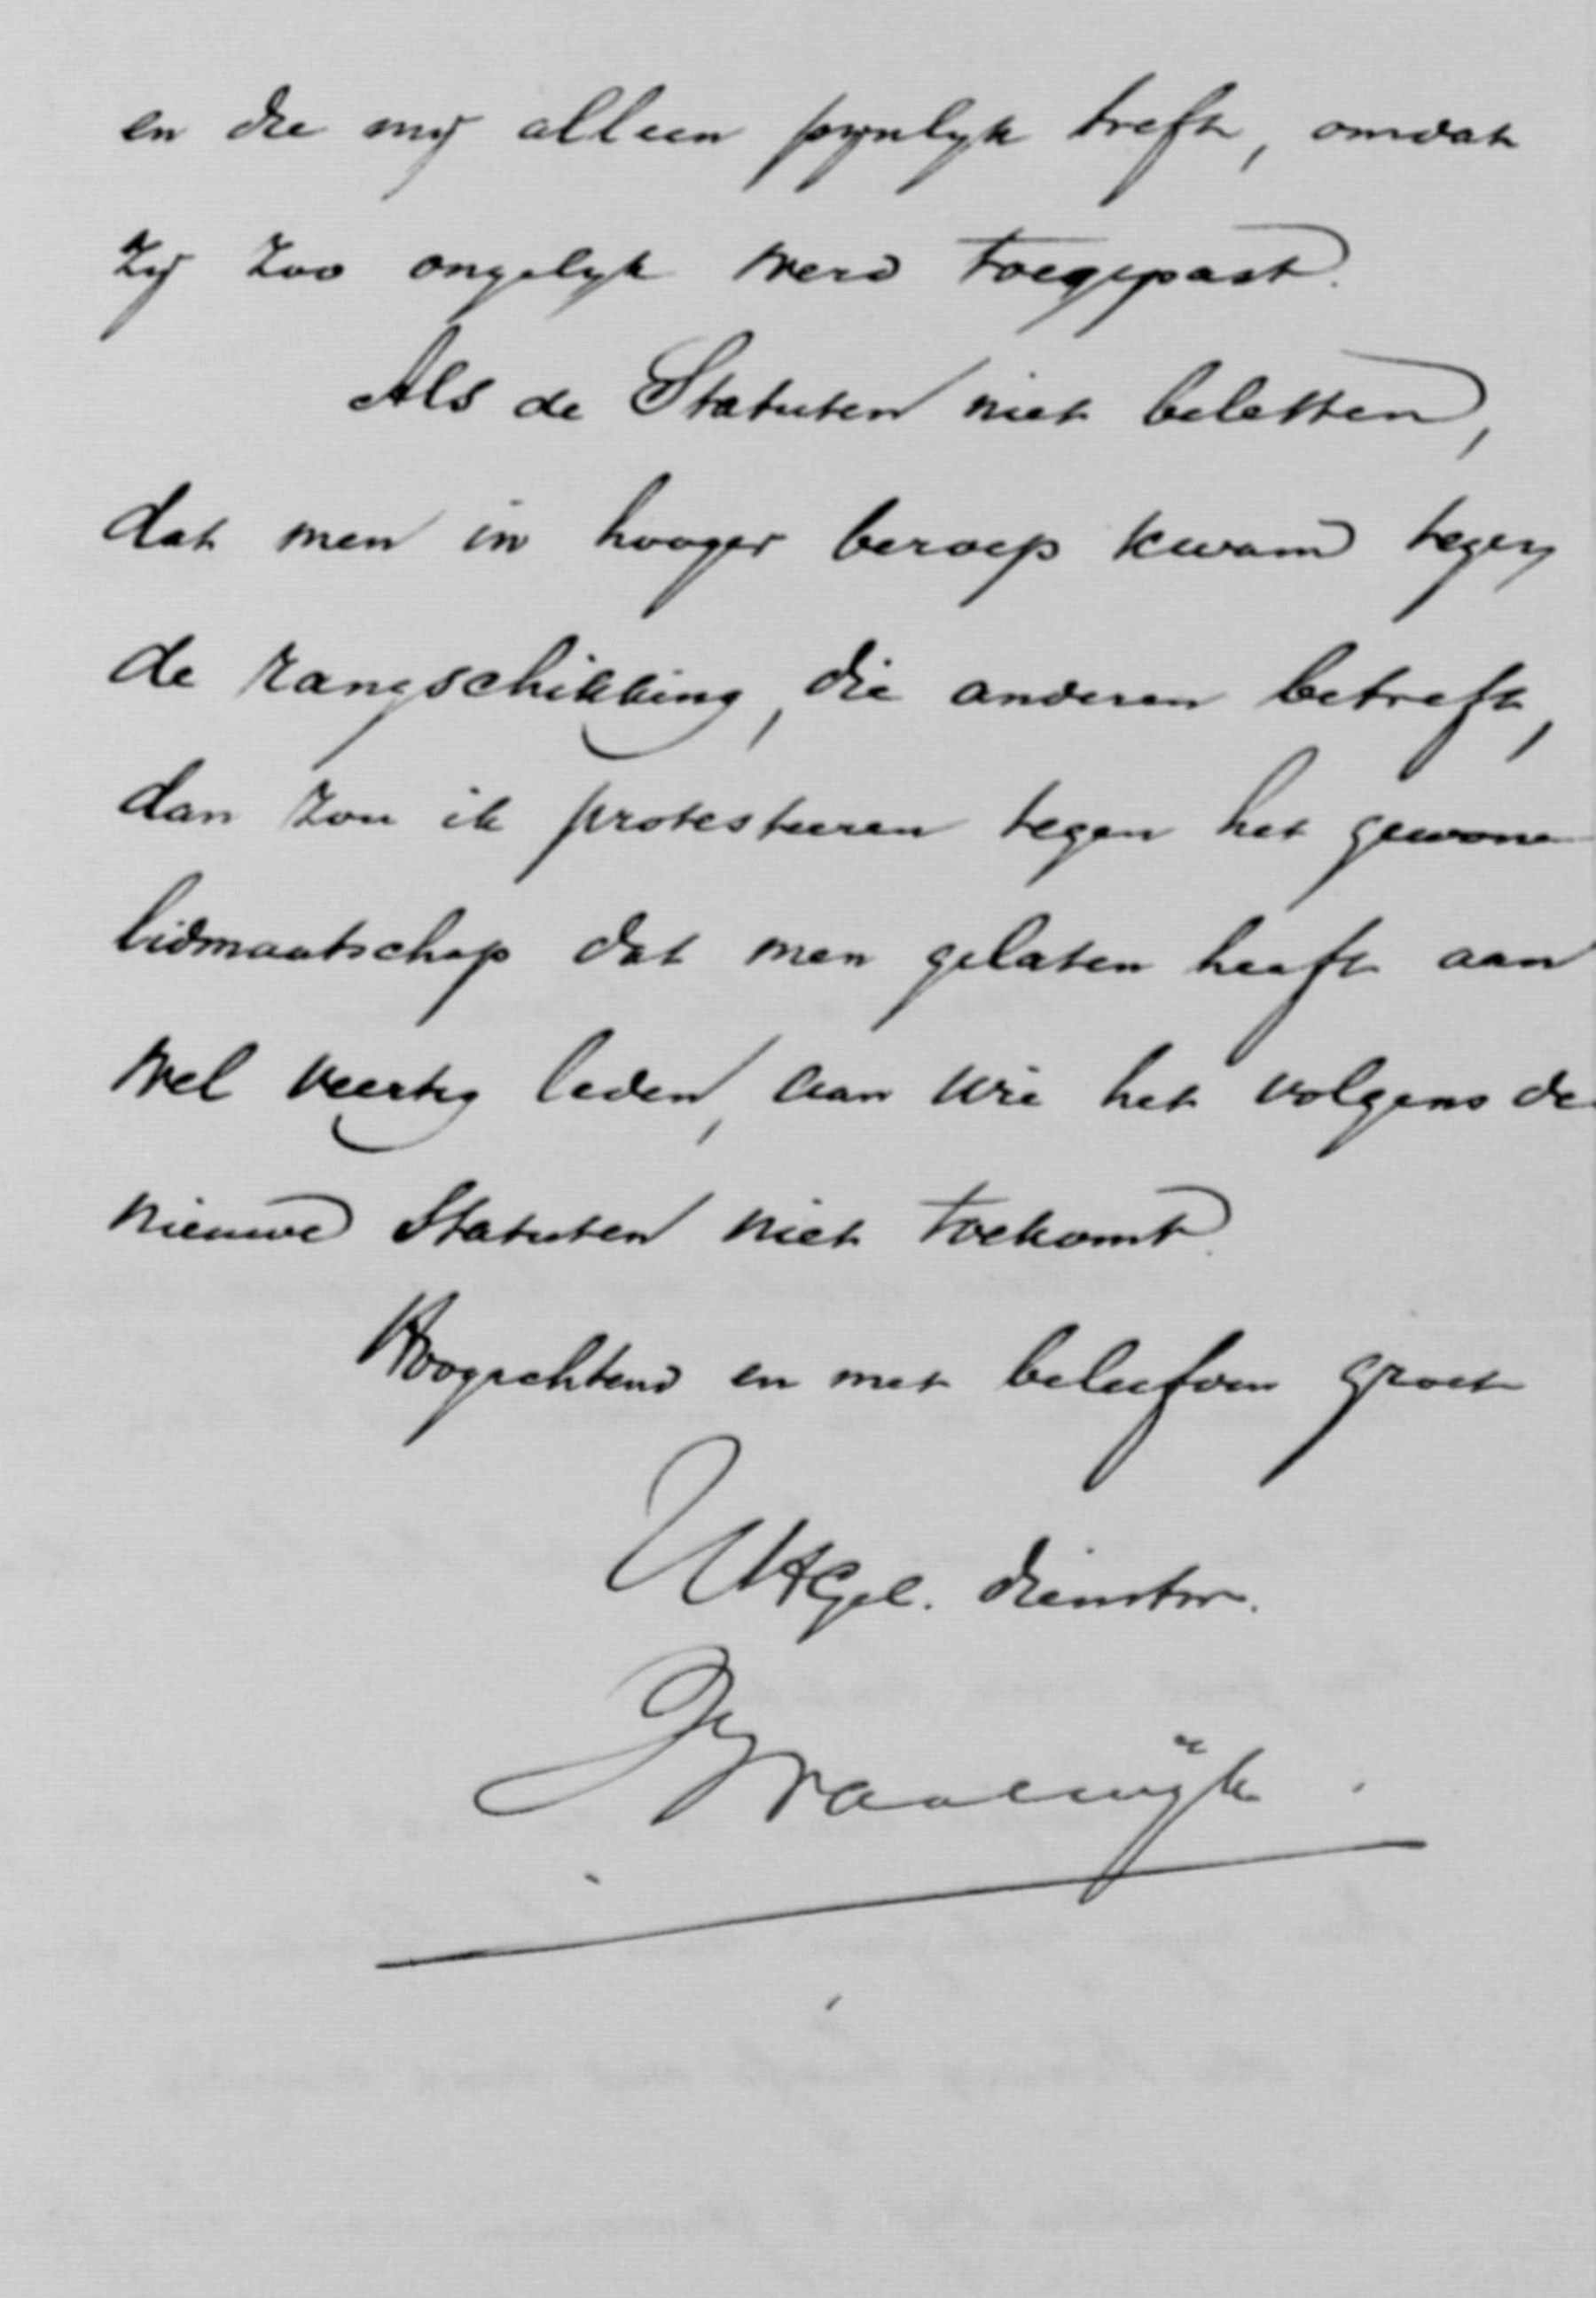 en die mij alleen pijnlijk treft, omdat
zij zoo ongelijk werd toegepast.
Als de Statuten niet beletten,
dat men in hooger beroep kwam tegen
de rangschikking, die anderen betreft,
dan zou ik protesteeren tegen het gewone
lidmaatschap dat men gelaten heeft aan
wel veertig leden, aan wie het volgens de
nieuwe Statuten niet toekomt.
Hoogachtend en met beleefden groet
UHGel. dienstw.